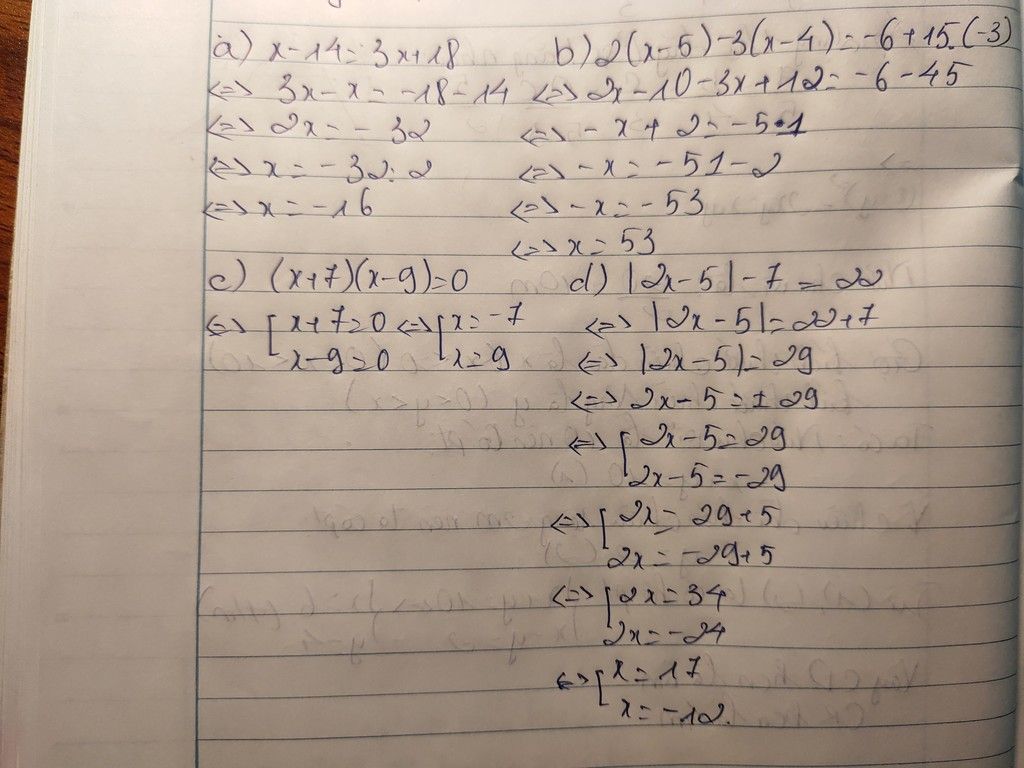 a) x-14=3x+18
⇔ 3x-x=-18-14
⇔ 2x=-32
⇔ x=-32:2
⇔ x=-16
b) 2(x-5)-3(x-4)=-6+15.(-3)
⇔ 2x-10-3x+12=-6-45
⇔ -x+2=-51
⇔ -x=-51-2
⇔ -x=-53
⇔ x=53
c) (x+7)(x-9)=0
⇔ [x+7=0 ⇔ [x=-7
x-9=0 x=9
d) |2x-5|-7=22
⇔ |2x-5|=22+7
⇔ |2x-5|=29
⇔ 2x-5=±29
⇔ [2x-5=29
2x-5=-29
⇔ [2x=29+5
2x=-29+5
⇔ [2x=34
2x=-24
⇔ [x=17
x=-12.